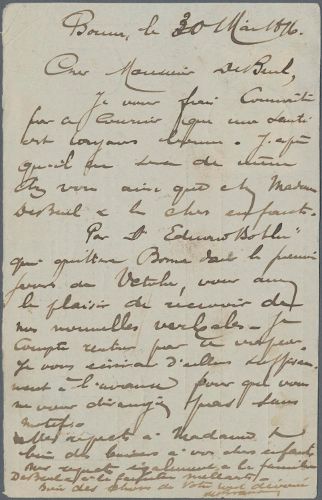 Boma, le 30 Mai 1896.
Cher Monsieur DeBeul,
Je vous fais connaitre
par ce courrier que ma santé
est toujours bonne. J'espère
qu'il en sera de même
chez vous ainsi que chez Madame
DeBeul & les chers enfants.
Par Dr Edward
qui quittera Boma dans le premier
jours de vous aurez
le plaisir de recevoir de
mes nouvelles verbales. Je
compte rentrer par ce vapeur.
Je vous d'ailleurs suffisam-
ment à l'avance pour que vous
ne vous pas sans
motifs.
Mes respects à Madame &
bien des baisers à vos chers enfants
mes respects également à la famille
DeBeul & à la famille
Bien des choses de votre